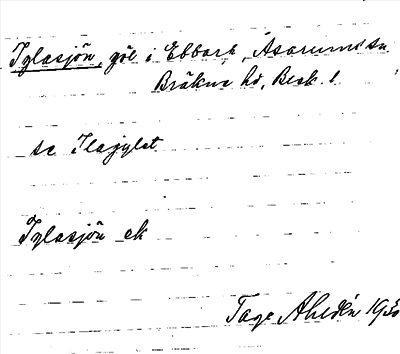 Iglasjön, göl i Ebbarp, Asarums sn
Bräkne hd, Blek. l
se Ilagylet
Iglasjön ek
Tage Ahldén 1930